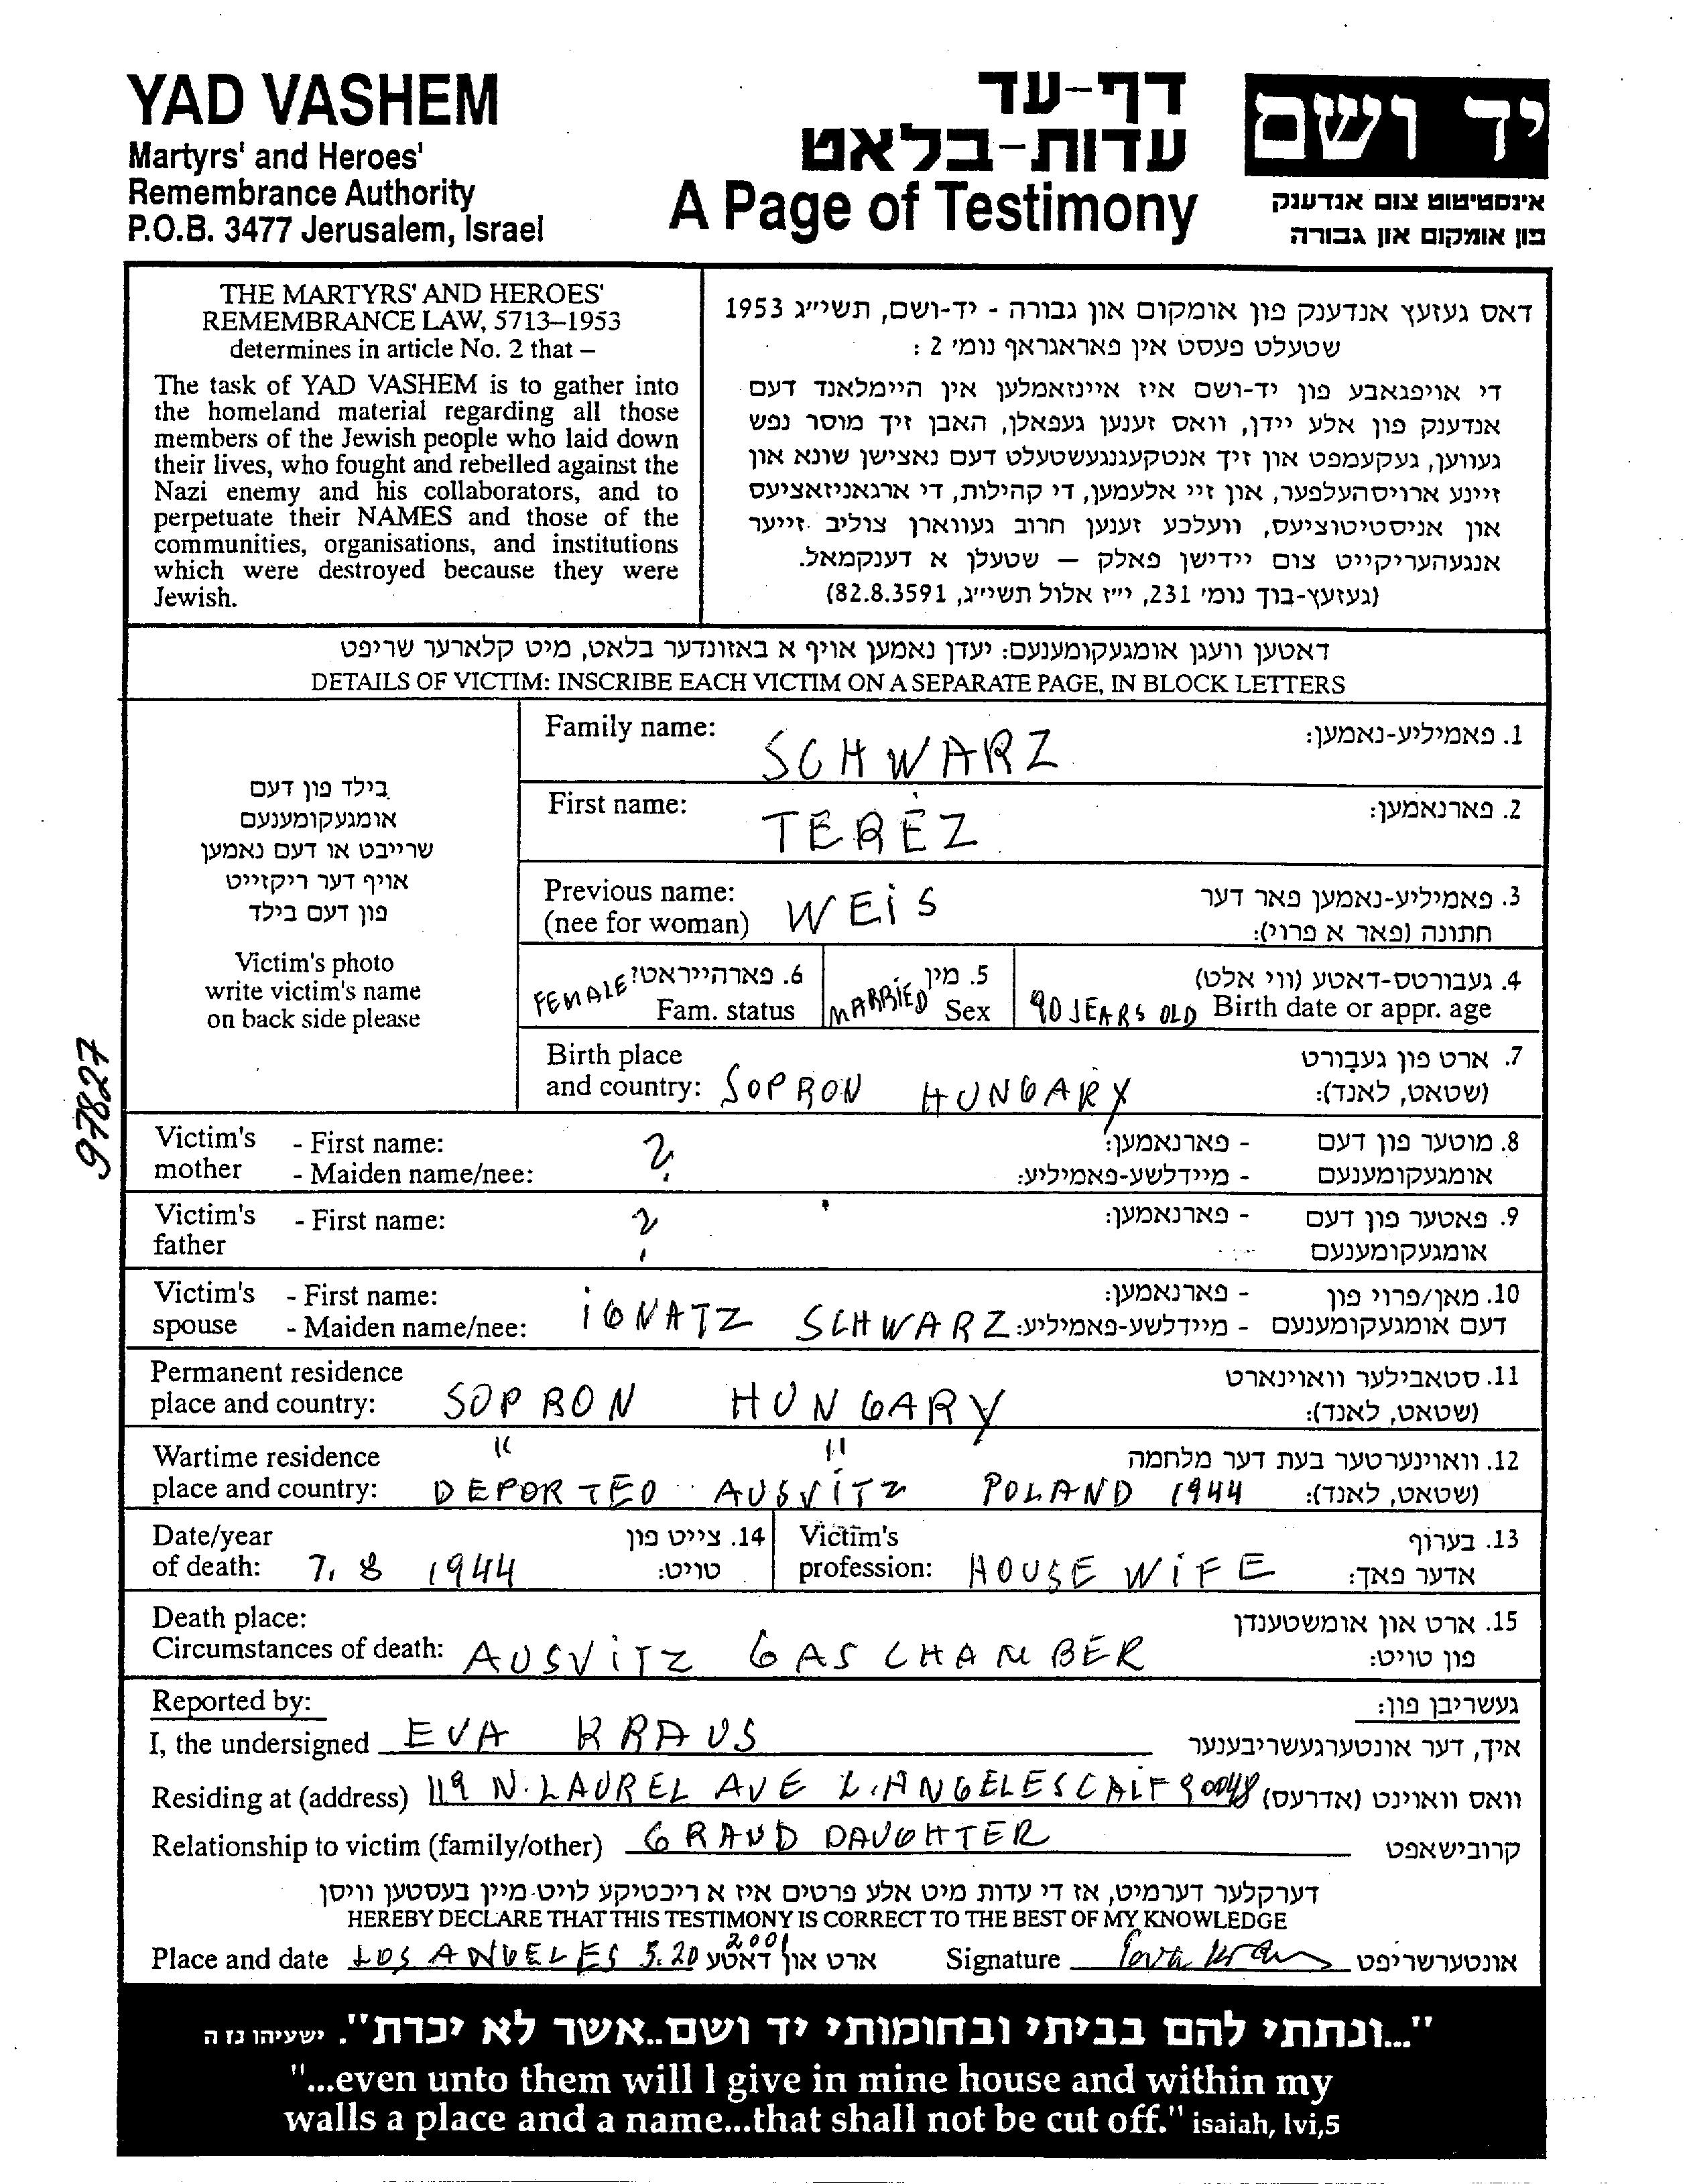 YAD VASHEM
Martyrs' and Heroes'
Remembrance Authority
P.O.B. 3477 Jerusalem, Israel
דף-עד
עדות-בלאט
A Page of Testimony
יד ושם
אינסטיטוט צום אנדענק
פון אומקום און גבורה
THE MARTYRS' AND HEROES'
REMEMBRANCE LAW, 5713–1953
determines in article No. 2 that –
The task of YAD VASHEM is to gather into
the homeland material regarding all those
members of the Jewish people who laid down
their lives, who fought and rebelled against the
Nazi enemy and his collaborators, and to
perpetuate their NAMES and those of the
communities, organisations, and institutions
which were destroyed because they were
Jewish.
דאס געזעץ אנדענק פון אומקום און גבורה - יד-ושם, תשי״ג 1953
שטעלט פעסט אין פאראגראף נומ׳ 2 :
די אויפגאבע פון יד-ושם איז איינזאמלען אין היימלאנד דעם
אנדענק פון אלע יידן, וואס זענען געפאלן, האבן זיך מוסר נפש
געווען, געקעמפט און זיך אנטקעגנגעשטעלט דעם נאצישן שונא און
זיינע ארויסהעלפער, און זיי אלעמען, די קהילות, די ארגאניזאציעס
און אניסטיטוציעס, וועלכע זענען חרוב געווארן צוליב זייער
אנגעהעריקייט צום יידישן פאלק — שטעלן א דענקמאל.
(געזעץ-בוך נומ׳ 231, י״ז אלול תשי״ג, 82.8.3591)
דאטען וועגן אומגעקומענעם: יעדן נאמען אויף א באזונדער בלאט, מיט קלארער שריפט
DETAILS OF VICTIM: INSCRIBE EACH VICTIM ON A SEPARATE PAGE, IN BLOCK LETTERS
בילד פון דעם
אומגעקומענעם
שרייבט או דעם נאמען
אויף דער ריקזייט
פון דעם בילד
Victim's photo
write victim's name
on back side please
97827
Family name: SCHWARZ 1. פאמיליע-נאמען:
First name: TERÉZ 2. פארנאמען:
Previous name: 3. פאמיליע-נאמען פאר דער
(nee for woman) WEiS חתונה (פאר א פרוי):
FEMALE 6. פארהייראטו? MARRIED 5. מין 4. געבורטס-דאטע (ווי אלט)
Fam. status Sex 90 JEARS OLD Birth date or appr. age
Birth place 7. ארט פון געבורט
and country: SOPRON HUNGARY (שטאט, לאנד):
Victim's - First name: ? - פארנאמען: 8. מוטער פון דעם
mother - Maiden name/nee: - מיידלשע-פאמיליע: אומגעקומענעם
Victim's - First name: ? - פארנאמען: 9. פאטער פון דעם
father אומגעקומענעם
Victim's - First name: - פארנאמען: 10. מאן/פרוי פון
spouse - Maiden name/nee: iGNATZ SCHWARZ - מיידלשע-פאמיליע: דעם אומגעקומענעם
Permanent residence 11. סטאבילער וואוינארט
place and country: SOPRON HUNGARY (שטאט, לאנד):
Wartime residence " " 12. וואוינערטער בעת דער מלחמה
place and country: DEPORTED AUSViTZ POLAND 1944 (שטאט, לאנד):
Date/year 14. צייט פון Victim's 13. בערוף
of death: 7. 8 1944 טויט: profession: HOUSE WiFE אדער פאך:
Death place: 15. ארט און אומשטענדן
Circumstances of death: AUSViTZ GAS CHAMBER פון טויט:
Reported by: געשריבן פון:
I, the undersigned EVA KRAUS איך, דער אונטערגעשריבענער
Residing at (address) 119 N. LAUREL AVE L. ANGELES CALIF 90048 וואס וואוינט (אדרעס)
Relationship to victim (family/other) GRAND DAUGHTER קרובישאפט
דערקלער דערמיט, אז די עדות מיט אלע פרטים איז א ריכטיקע לויט מיין בעסטען וויסן
HEREBY DECLARE THAT THIS TESTIMONY IS CORRECT TO THE BEST OF MY KNOWLEDGE
Place and date LOS ANGELES 5.20 2001 ארט און דאטע Signature Eva Kraus אונטערשריפט
"...ונתתי להם בביתי ובחומותי יד ושם..אשר לא יכרת". ישעיהו נז ה
"...even unto them will I give in mine house and within my
walls a place and a name...that shall not be cut off." isaiah, lvi,5